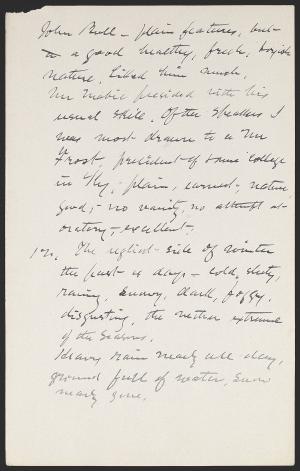 John Bull – plain features, but
a good healthy, fresh, boyish
nature. Liked him much.
Mr Mabie presided with his
usual skill. Of the speakers I
was most drawn to a Mr
Frost, president of some college
in Ky, – plain, earnest, nature
good, – no vanity, no attempt at
oratory, – excellent.
The ugliest side of winter
the past days – cold, sleety,
raining, snowy, dark, foggy,
disgusting, the nether extreme
of the seasons.
Heavy rain nearly all day,
ground full of water, snow
nearly gone.